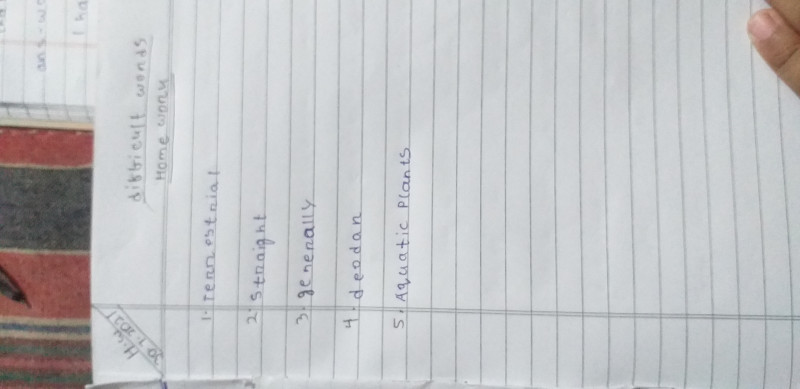 H.W
30.7.2021
difficult words
Home work
1. Terrestrial
2. straight
3. generally
4. deodar
5. Aquatic Plants
ans-wo
I ha